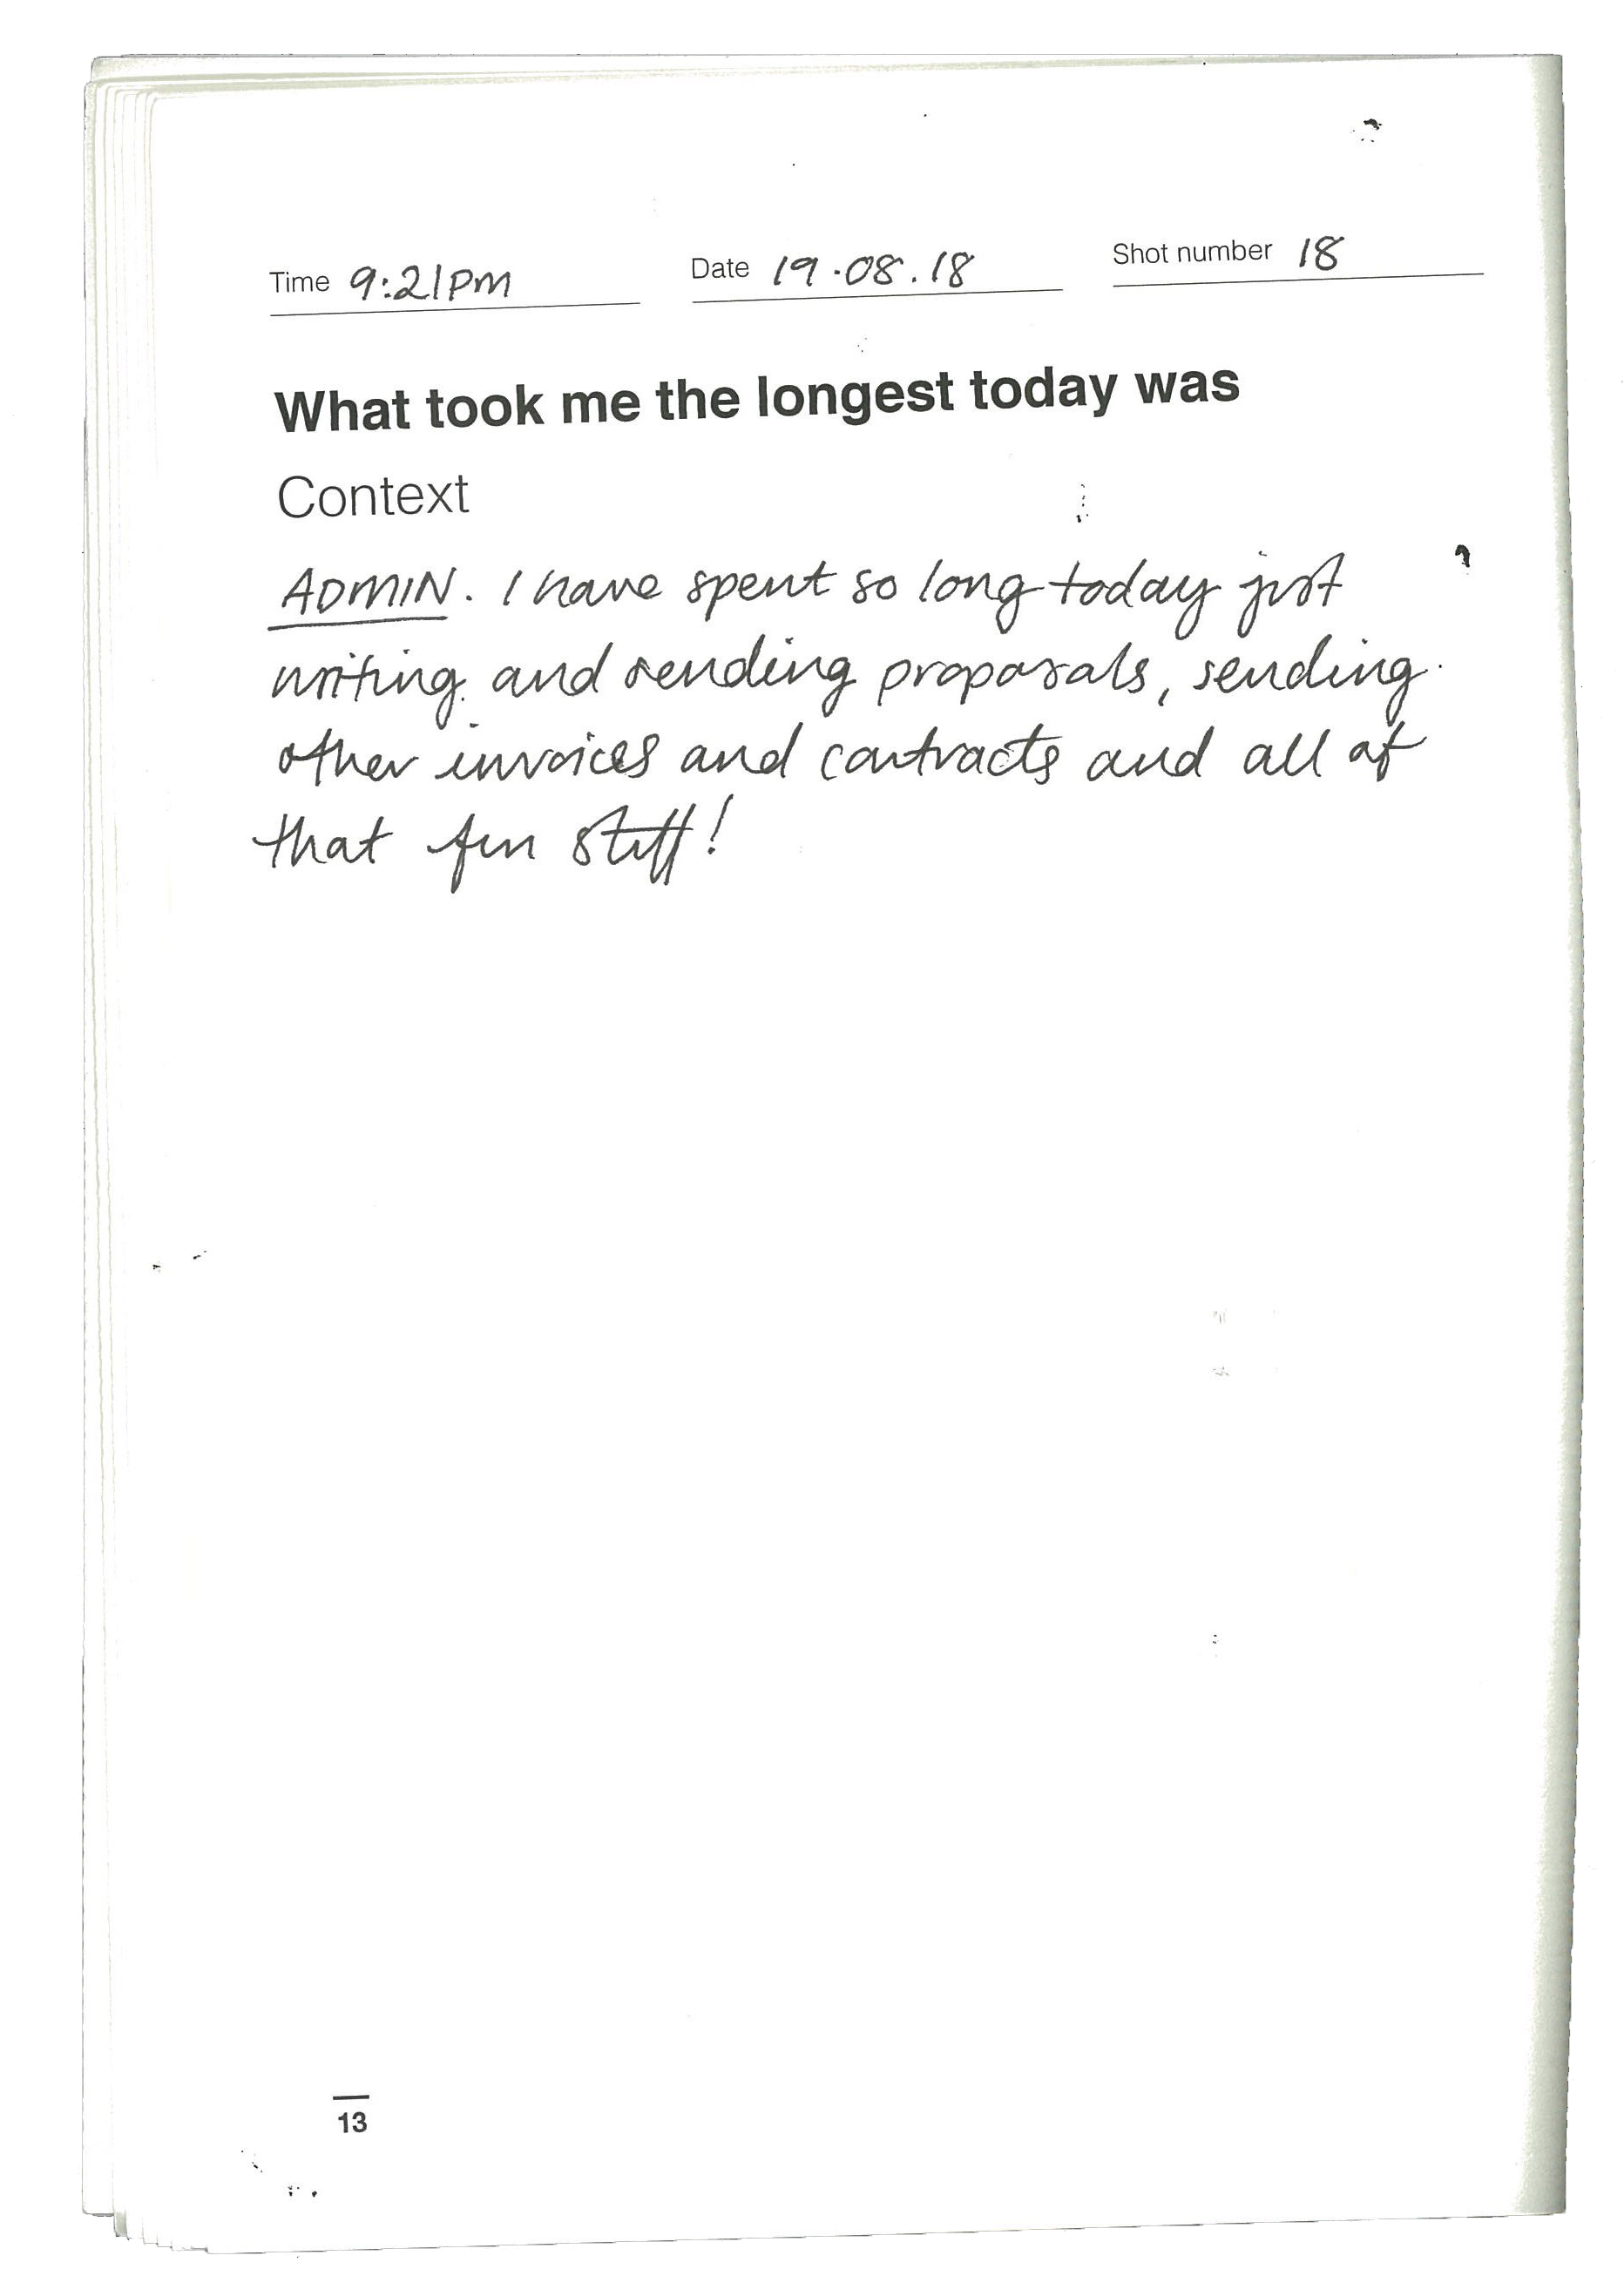 Time 9:21PM Date 19.08.18 Shot number 18
What took me the longest today was
Context
ADMIN. I have spent so long today just
writing and sending proposals, sending
other invoices and contracts and all of
that fun stuff!
13